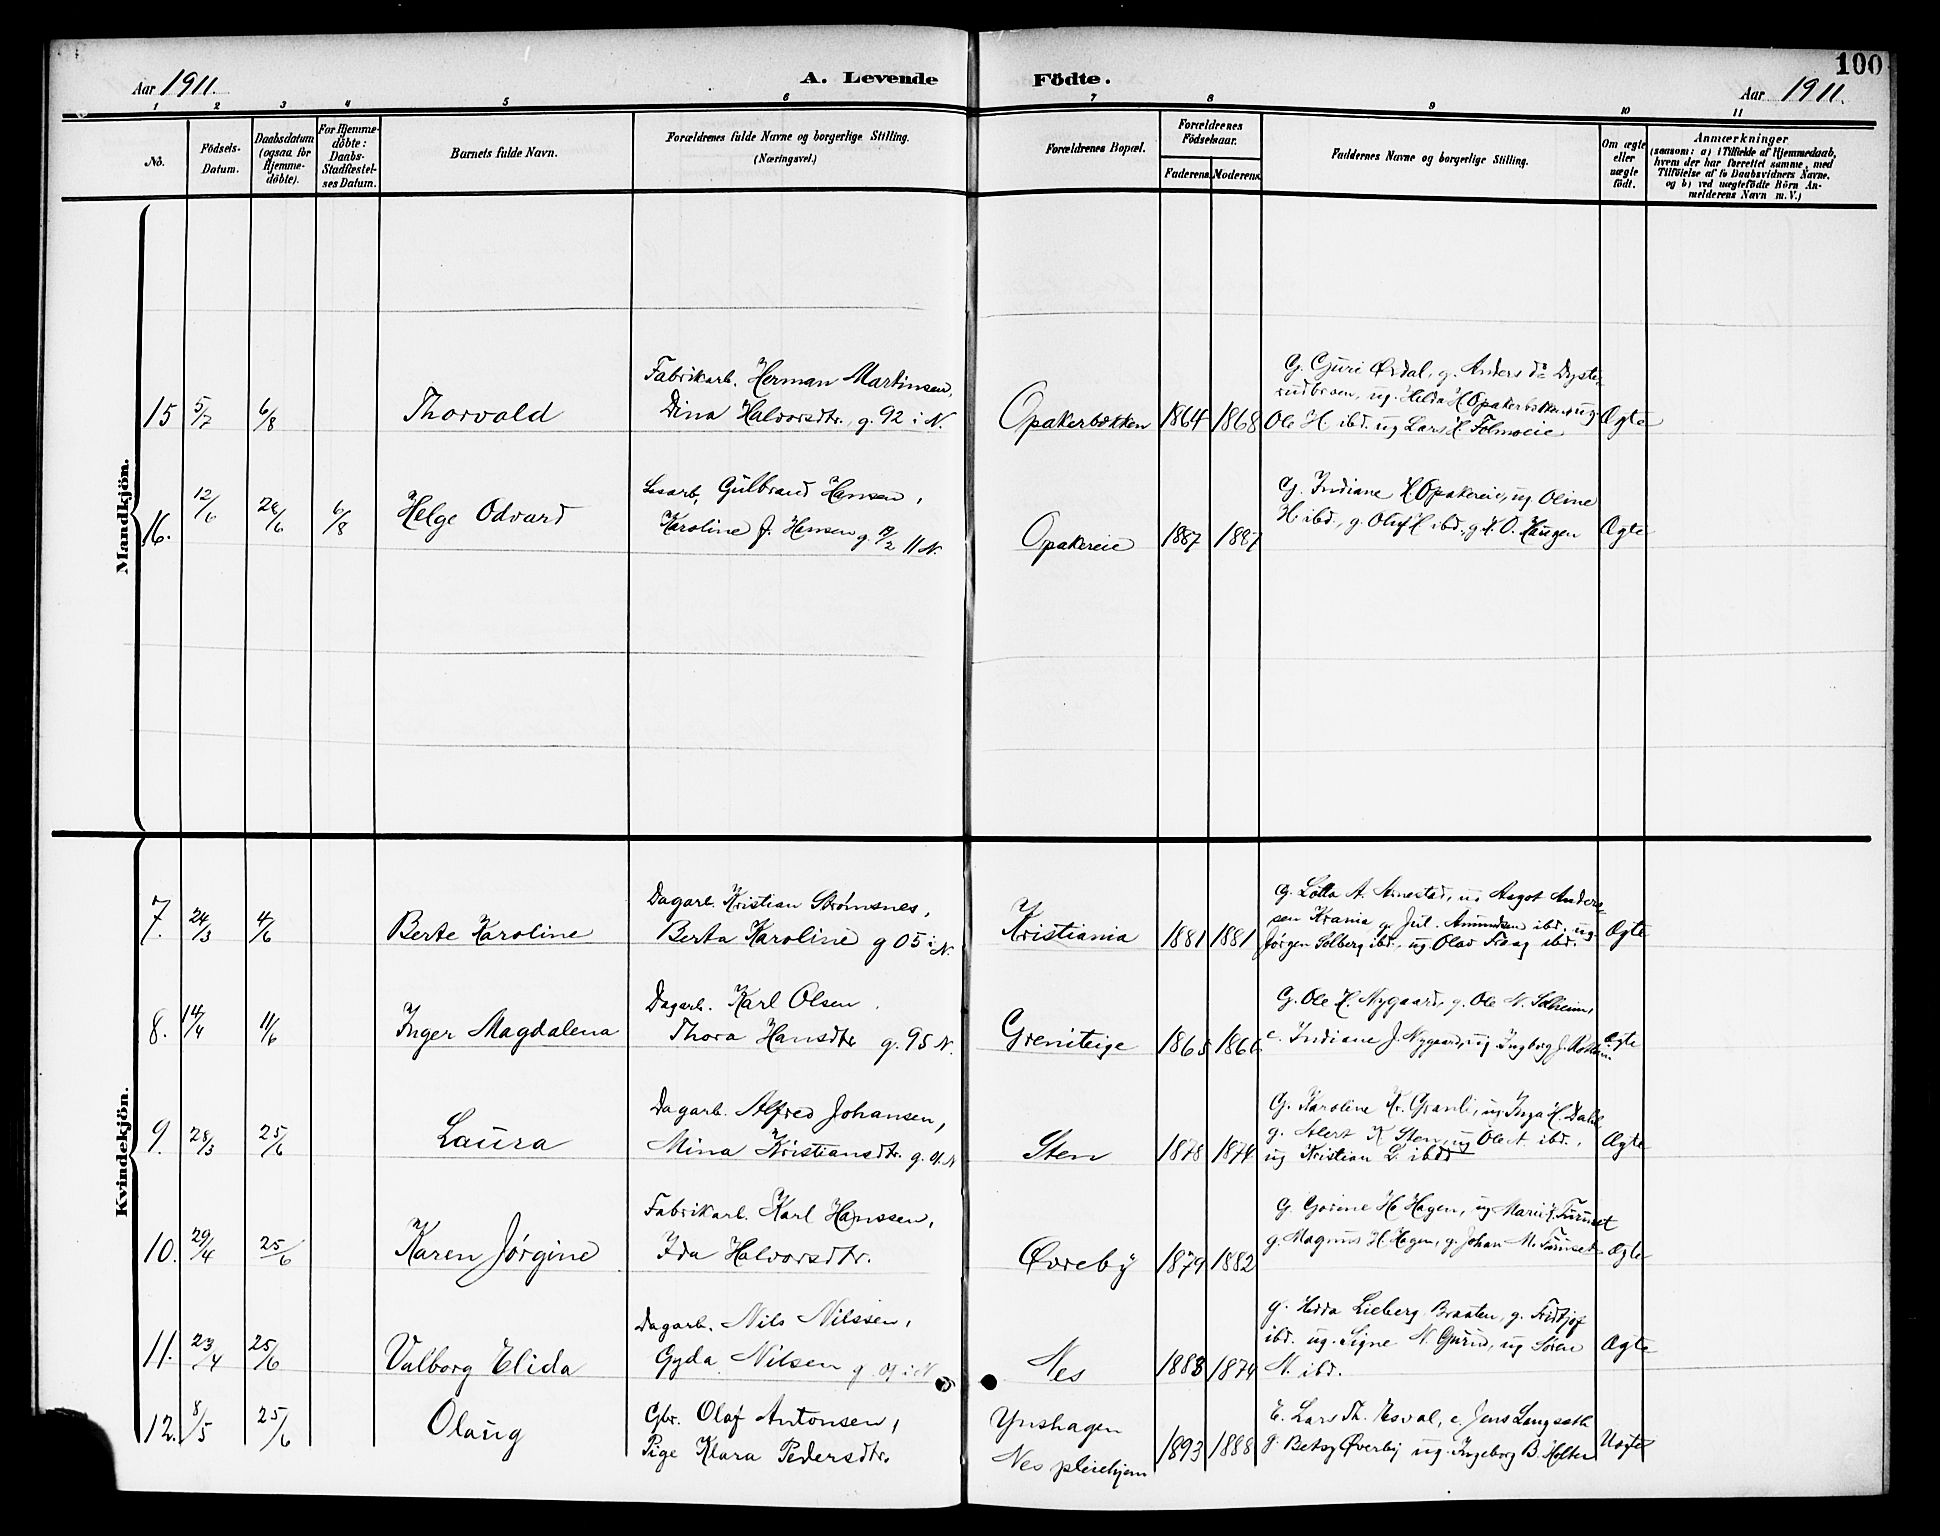 100
Aar 1911.
A. Levende Födte.
Aar 1911.
1 2 3 4 5 6 7 8 9 10 11
No.
Födsels-
Datum.
Daabsdatum
(ogsaa for
Hjemme-
döbte).
For Hjemme-
döbte:
Daabs-
Stadfæstel-
ses Datum.
Barnets fulde Navn.
Forældrenes fulde Navne og borgerlige Stilling.
(Næringsvei.)
Forældrenes Bopæl.
Forældrenes
Födselsaar.
Faderens. Moderens.
Faddernes Navne og borgerlige Stilling.
Om ægte
eller
uægte
födt.
Anmærkninger
(saasom: a) i Tilfælde af Hjemmedaab,
hvem der har forrettet samme, med
Tilföielse af to Daabsvidners Navne,
og b) ved uægtefödte Börn An-
melderens Navn m. V.)
Mandkjön.
15 5/7 6/8 Thorvald
Fabrikarb. Herman Martinsen,
Dina Halvorsdtr., g. 92 i N.
Opakerbækken 1864 1868
G. Guri Ørdal, g. Anders do Dyste-
rudbraaen, ug. Hilda H Opakerbækken, ug.
Ole H. ibd. ug Lars H. Folmoeie
Ægte
16. 12/6 26/6 6/8 Helge Odvard
Løsarb. Gulbrand Hansen,
Karoline J. Hansen g. /2 11 N.
Opakereie 1887 1887
G. Indiane H Opakereie, ug Oline
H. ibd., g. Oluf H ibd., g K. O. Haugen
Ægte
Kvindekjön.
7. 24/3 4/6 Berte Karoline
Dagarb. Kristian Strømsnes,
Berta Karoline g 05 i N.
Kristiania 1881 1881
g. Lotta A. Arnestad, ug Aagot Anders-
sen Krania g. Jul. Amundsen ibd. ug.
Jørgen Solberg ibd., ug Olav ibd.
Ægte
8. 14/4 11/6 Inger Magdalena
Dagarb. Karl Olsen,
Thora Hansdtr g. 95 N.
Greniteige 1865 1866
G. Ole H. Nygaard, g. Ole N. Solheim,
e. Indiane J. Nygaard, ug Ingborg J.
Ægte
9. 28/3 25/6 Laura
Dagarb. Alfred Johansen,
Mina Kristiansdtr. g. 01. N
Sten 1878 1874
G. Karoline Kr. Granli, ug Inga H. Dahl
g. Alert K Sten, ug Ole A ibd.,
ug Kristian L. ibd
Ægte
10. 29/4 25/6 Karen Jørgine
Fabrikarb. Karl Hanssen,
Ida Halvorsdtr.
Øvreby 1879 1882
G. Gorine H. Hagen, ug Marie H. Furuset
g. Magnus H. Hagen, g. Johan M. Furuset
Ægte
11. 23/4 25/6 Valborg Elida
Dagarb. Nils Nilssen,
Gyda Nilsen g. 01 i N
Nes 1883 1874
g. Hilda Lieberg Braaten, g. Fridtjof
ibd. ug. Signe N. Gurud, ug Søren
N. ibd.
Ægte
12. 8/5 25/6 Olaug
Gbr. Olaf Antonsen,
Pige Klara Pedersdtr.
Ynshagen
Nes pleiehjem
1893 1888
E. Lars Th. Esval, e. Jens Langseth
g. Betsy Øverby ug. Ingeborg B. Holter
Uægte